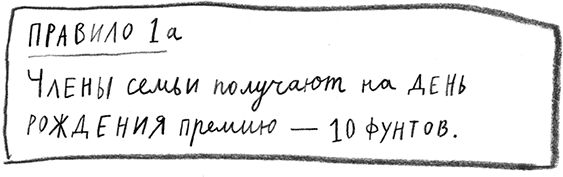 ПРАВИЛО 1а
Члены семьи получают на ДЕНЬ
РОЖДЕНИЯ премию — 10 фунтов.